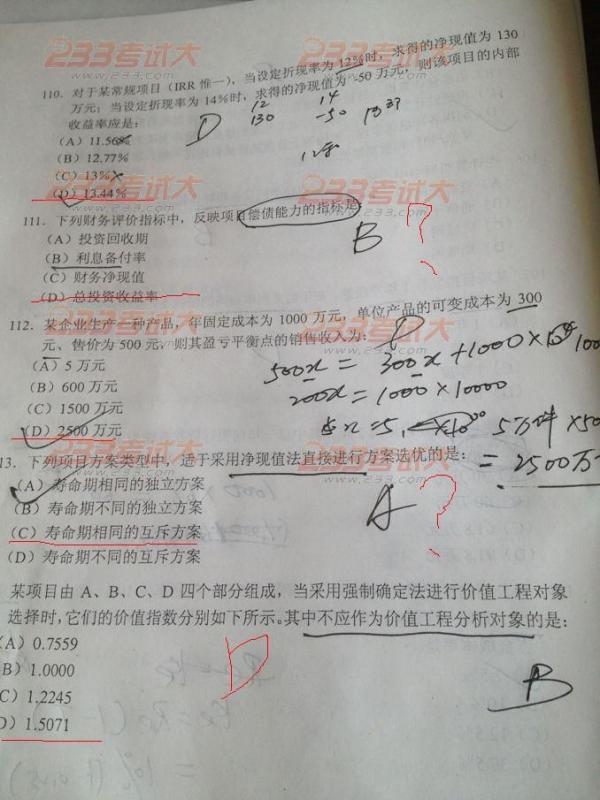 233考试大
www.233.com
110. 对于某常规项目（IRR 惟一），当设定折现率为 12%时，求得的净现值为 130
万元；当设定折现率为 14%时，求得的净现值为-50 万元，则该项目的内部
收益率应是：
12 14
130 -50
D
(A) 11.56%
(B) 12.77%
(C) 13%
(D) 13.44%
233考试大
www.233.com
111. 下列财务评价指标中，反映项目偿债能力的指标是
B ?
(A) 投资回收期
(B) 利息备付率
(C) 财务净现值
(D) 总投资收益率
233考试大
112. 某企业生产一种产品，年固定成本为 1000 万元，单位产品的可变成本为 300
元、售价为 500 元，则其盈亏平衡点的销售收入为：
D
(A) 5 万元
500x = 300x + 1000 ×
(B) 600 万元
200x = 1000 × 10000
(C) 1500 万元
(D) 2500 万元
5万件 × 50
= 2500万
233考试大
13. 下列项目方案类型中，适于采用净现值法直接进行方案选优的是：
(A) 寿命期相同的独立方案
(B) 寿命期不同的独立方案
A ?
(C) 寿命期相同的互斥方案
(D) 寿命期不同的互斥方案
某项目由 A、B、C、D 四个部分组成，当采用强制确定法进行价值工程对象
选择时，它们的价值指数分别如下所示。其中不应作为价值工程分析对象的是：
A) 0.7559
B) 1.0000
D
B
C) 1.2245
D) 1.5071